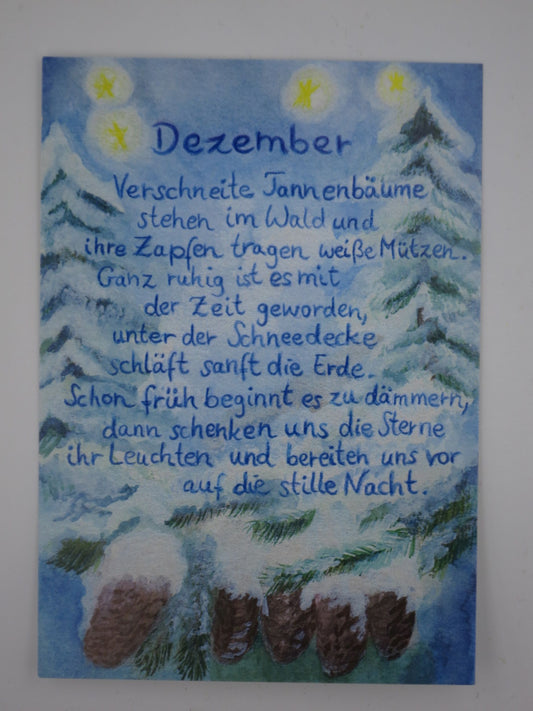 Dezember
Verschneite Tannenbäume
stehen im Wald und
ihre Zapfen tragen weiße Mützen.
Ganz ruhig ist es mit
der Zeit geworden,
unter der Schneedecke
schläft sanft die Erde.
Schon früh beginnt es zu dämmern,
dann schenken uns die Sterne
ihr Leuchten und bereiten uns vor
auf die stille Nacht.